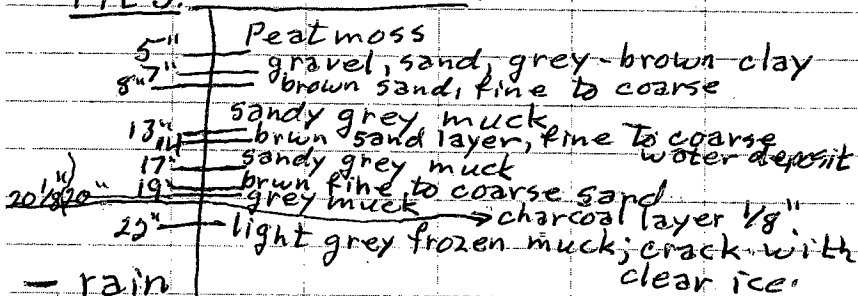 Peat moss
5"
gravel, sand, grey-brown clay
7"
8" brown sand, fine to coarse
sandy grey muck
13" brwn sand layer, fine to coarse
14" water deposit
17" sandy grey muck
19" brwn fine to coarse sand
20 1/8" 20" grey muck → charcoal layer 1/8".
22" light grey frozen muck; crack with
clear ice.
— rain